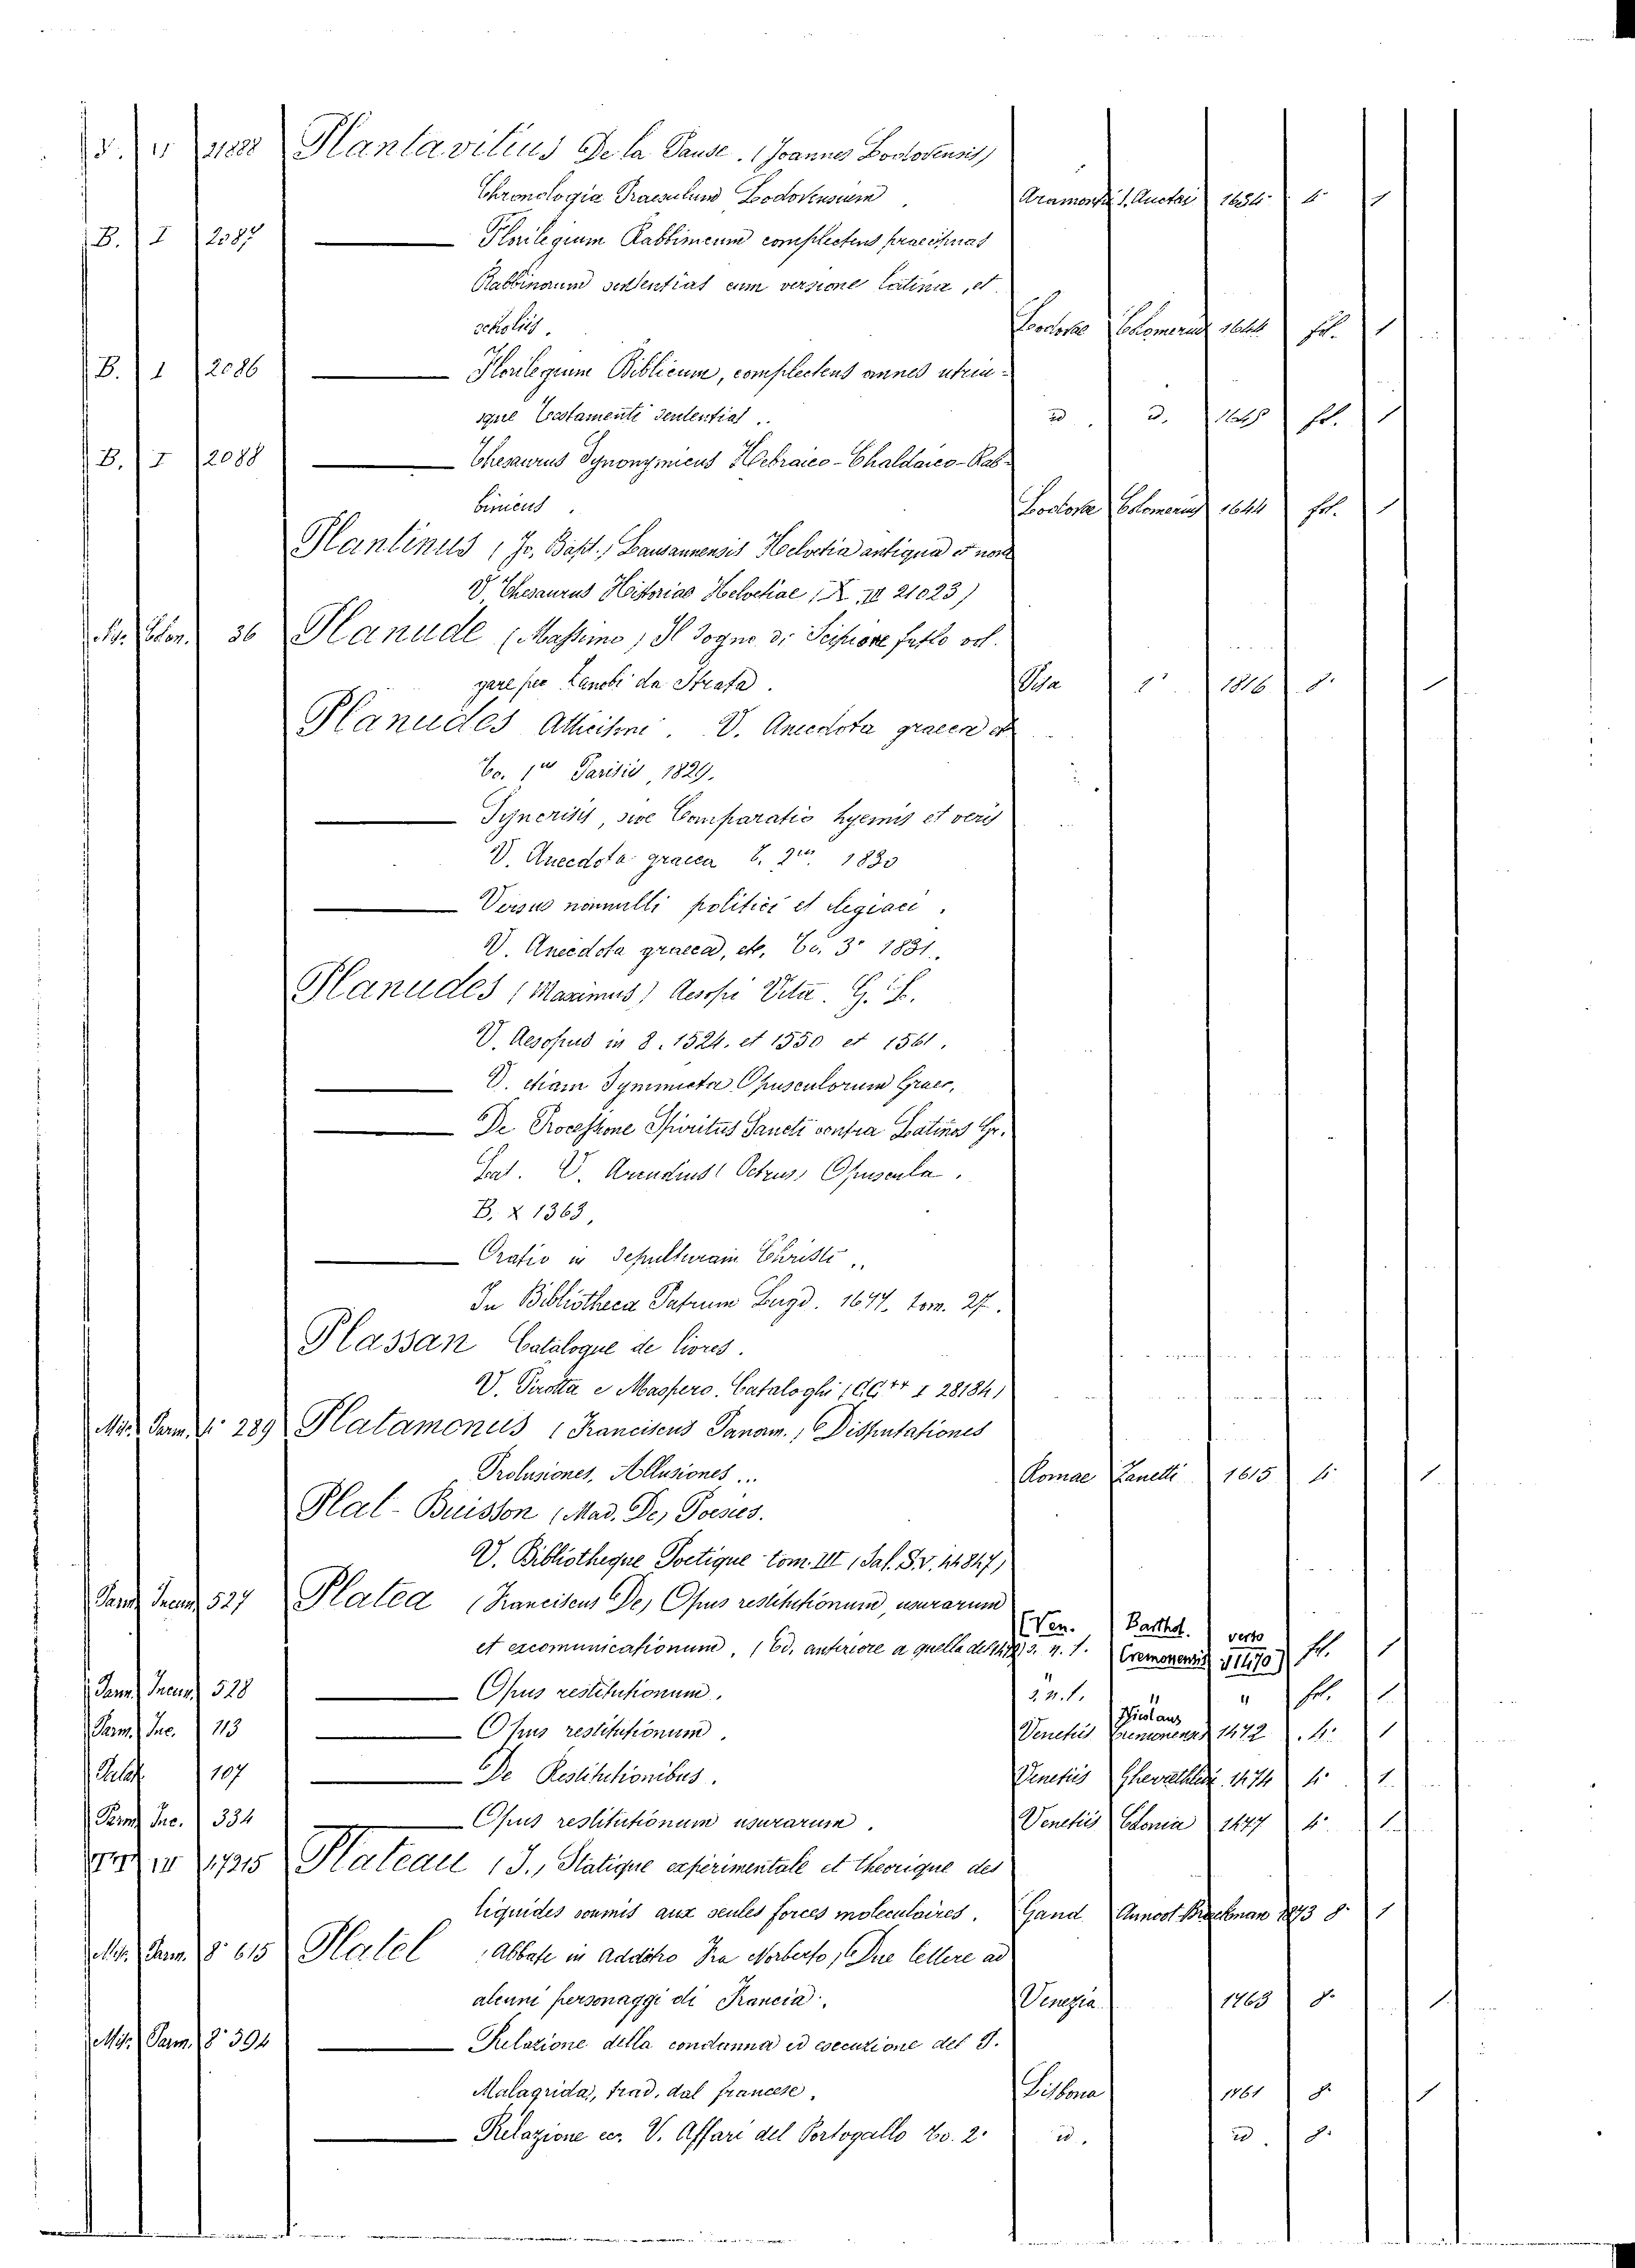 S. II 21888 Plantavitius De la Pause. (Joannes Lodovensis)
Chronologia Praesulum Lodovensium Aramontii S. Auctor 1634 4° 1
B. I 2087 Florilegium Rabbinicum complectens praecipuas
Rabbinorum sententias cum versione latina, et
scholiis. Lodovae Colomerius 1644 fol. 1
B. I 2086 Florilegium Biblicum, complectens omnes utriu-
sque Testamenti sententias.. id. id. 1645 fol. 1
B. I 2088 Thesaurus Synonymicus Hebraico-Chaldaico-Rab-
binicus. Lodovae Colomerius 1644 fol. 1
Plantinus (Jo. Bapt.) Lausannensis Helvetia antiqua et nova
V. Thesaurus Historiae Helvetiae (X. III 21023)
36 Planude (Massimo) Il Sogno di Scipione fatto vol-
gare per Zanobi da Strata. Pisa 1816 8° 1
Planudes V. Anecdota graeca et
To. 1um Parisiis, 1829.
Syncrisis, sive Comparatio hyemis et veris
V. Anecdota graeca t. 2um 1830
Versus nonnulli politici et elegiaci.
V. Anecdota graeca, etc. To. 3° 1831.
Planudes (Maximus) Aesopi Vita. G. L.
V. Aesopus in 8. 1524. et 1550 et 1561.
V. etiam Symmicta Opusculorum Graec.
De Processione Spiritus Sancti contra Latinos Gr.
Lat. V. Arcudius Petrus, Opuscula.
B. X 1363,
Oratio in Sepulturam Christi..
In Bibliotheca Patrum Lugd. 1677. tom. 27.
Plassan Catalogue de livres.
V. Pirotta e Maspero. Cataloghi (CC** I 28184)
Mis. Parm. 4° 289 Platamonus (Franciscus Panorm.) Disputationes
Prolusiones, Allusiones... Romae Zanetti 1615 4° 1
Plat-Buisson (Mad. De) Poesies.
V. Bibliotheque Poetique tom. III (Sal. S.V. 14847)
Parm. Incun. 527 Platea (Franciscus De) Opus restitutionum, usurarum
et excomunicationum, (Ed. anteriore a quella del 1472) s. n. l. (Ven. Barthol. Cremonensis verso il 1470) fol. 1
Parm. Incun. 528 Opus restitutionum. s. n. l. " " fol. 1
Parm. Inc. 113 Opus restitutionum. Venetiis Nicolaus Cremonensis 1472 4° 1
Pelaf. 107 De Restitutionibus. Venetiis 1474 4° 1
Parm. Inc. 334 Opus restitutionum usurarum. Venetiis Colonia 1477 4° 1
III 17215 Plateau (J.) Statique experimentale et theorique des
liquides soumis aux seules forces moleculaires. Gand Annoot Braekman 1873 8° 1
Mis. Parm. 8° 615 Platel (Abbate in addietro Fra Norberto) Due lettere ad
alcuni personaggi di Francia. Venezia 1763 8° 1
Mis. Parm. 8° 394 Relazione della condanna ed esecuzione del G.
Malagrida, trad. dal francese. Lisbona 1761 8° 1
Relazione ec. V. Affari del Portogallo To. 2° id. id. 8°